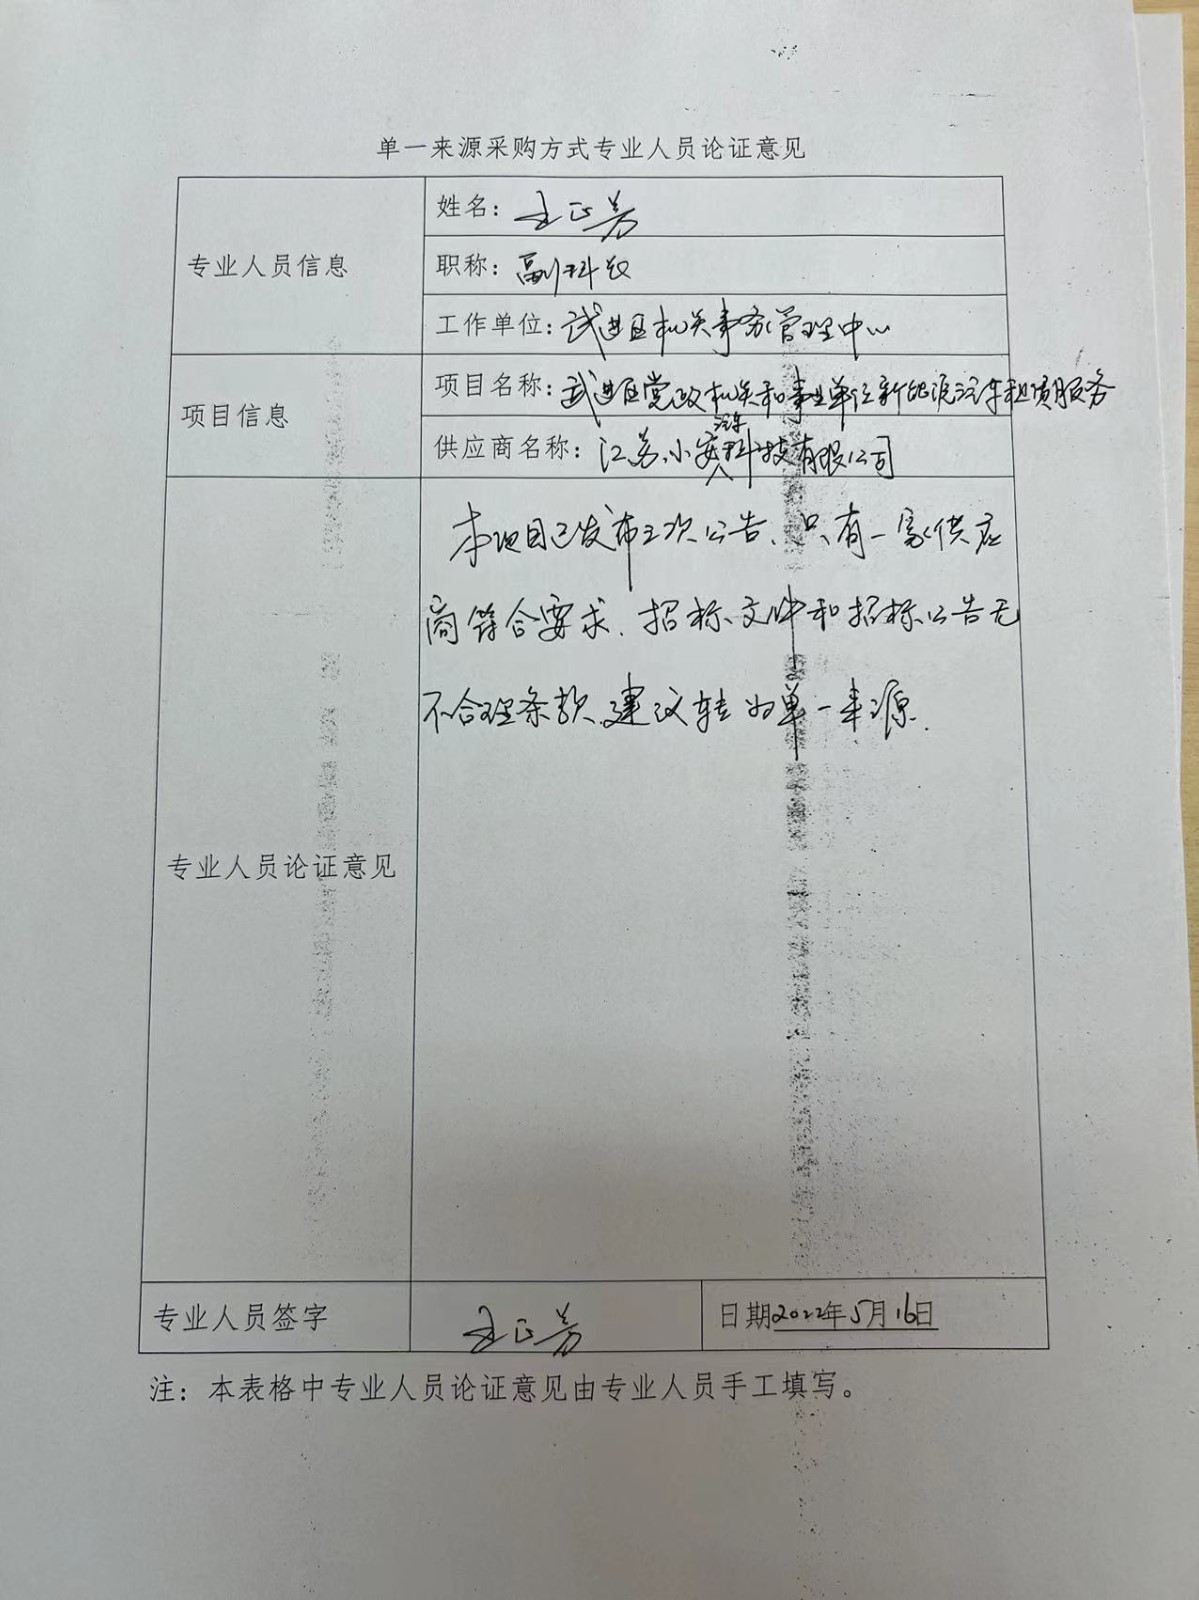 单一来源采购方式专业人员论证意见
专业人员信息
姓名：王正芳
职称：副科级
工作单位：武进区机关事务管理中心
项目信息
项目名称：武进区党政机关和事业单位新能源汽车租赁服务
供应商名称：江苏小安汽车科技有限公司
专业人员论证意见
本项目已发布三次公告、只有一家供应
商符合要求．招标文件和招标公告无
不合理条款、建议转为单一来源．
专业人员签字
王正芳
日期2022年5月16日
注：本表格中专业人员论证意见由专业人员手工填写。